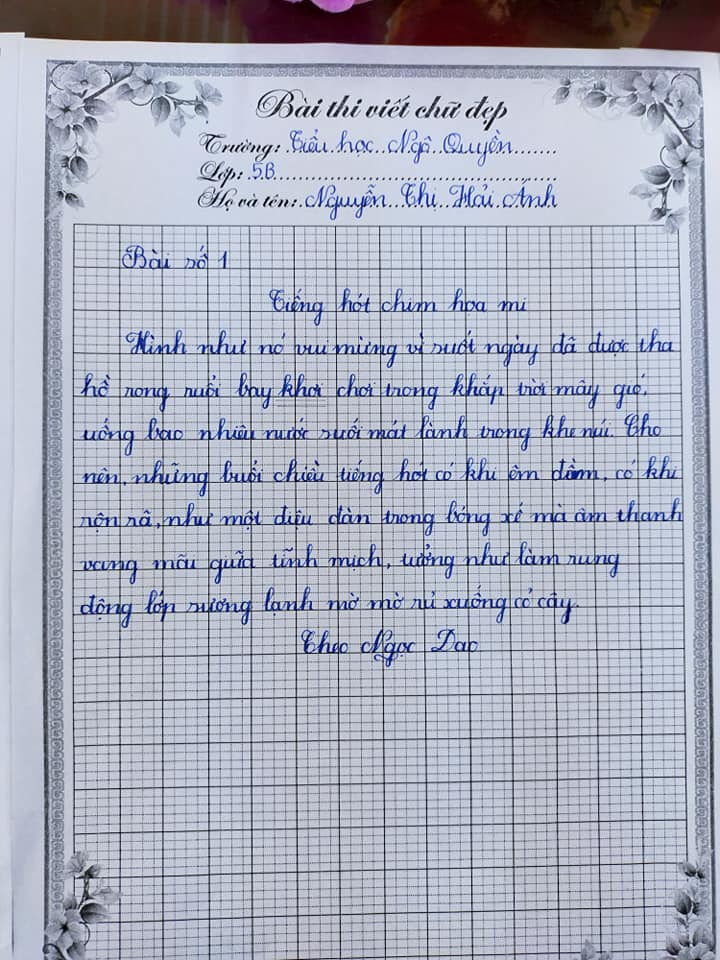 Bài thi viết chữ đẹp
Trường: Tiểu học Ngô Quyền
Lớp: 5B
Họ và tên: Nguyễn Thị Hải Ánh
Bài số 1
Tiếng hót chim họa mi
Hình như nó vui mừng vì suốt ngày đã được tha
hồ rong ruổi bay khơi chơi trong khắp trời mây gió,
uống bao nhiêu nước suối mát lành trong khe núi. Cho
nên, những buổi chiều tiếng hót có khi êm đềm, có khi
rộn rã, như một điệu đàn trong bóng xế mà âm thanh
vang mãi giữa tĩnh mịch, tưởng như làm rung
động lớp sương lạnh mờ mờ rủ xuống cỏ cây.
Theo Ngọc Dao